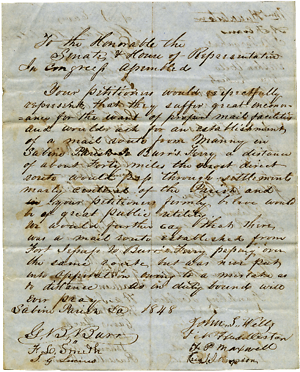 To the Honorable the
Senate & House of Representatives
In Congress assembled
Your petitioners would respectfully
represent that they suffer great
for the want of proper mail facilities
and would ask for an establishment
of a mail route from Manny in
Sabine Parish to Burrs Ferry a distance
of about forty miles the most direct
route would pass through settlements
nearly central of the Parish and
in your petitioners humbly believe would
be of great public utility
We would further say that there
was a mail route established from
Fort Jesup to Burrs Ferry
the same route but was never put
into opperation owing to a mistake as
to distance as in duty bound will
ever pray
Sabine Parish La 1848
Burr
Smith
John
Maxwell